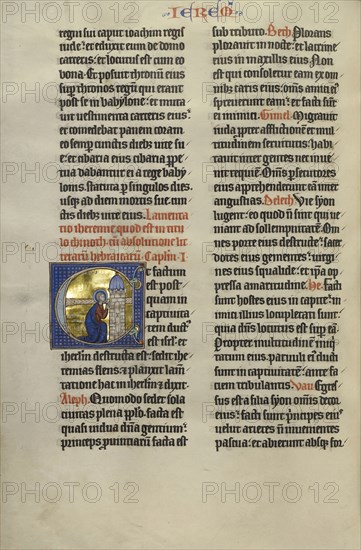 IEREM
regni sui caput ioachim regis
iude et eduxit eum de domo
carceris. et locutus est cum eo
bona. Et posuit thronum eius
sup thronos regum qui erant
post se in babylone. et muta
uit uestimenta carceris eius.
et comedebat panem coram
eo semp cunctis diebz uite su
e. et cibaria eius cibaria ppe
tua dabantur ei a rege baby
lonis. statuta p singulos dies.
usqz ad diem mortis sue cun
ctis diebz uite eius. Lamenta
tio iheremie
Et factum
est post
quam in
captiuita
tem duct
est isrl et
iherlm destructa est. sedit ihe
remias flens. et planxit lam
tatione hac in iherlm et dixit.
Aleph. Quomodo sedet sola
ciuitas plena pplo. facta est
quasi uidua dna gentium.
princeps puinciarum facta est
sub tributo. Beth. Plorans
plorauit in nocte. et lacrime
eius in maxillis eius. Non
est qui consoletur eam ex om
nibz caris eius. omnes amici ei
spreuerunt eam. et facti sunt
ei inimici. Gimel. Migrauit
iuda ppter afflictionem et mul
titudinem seruitutis. habi
tauit inter gentes nec inue
nit requiem. Omes psecutores
eius apprehenderunt eam inter
angustias. Deleth. Vie syon
lugent. eo quod non sunt qui ue
niant ad sollempnitatem. Om
nes porte eius destructe. sacer
dotes eius gementes. uirgi
nes eius squalide. et ipsa op
pressa amaritudine. He. fa
cti sunt hostes eius in capite. ini
mici illius locupletati sunt.
quia dns locutus est sup eam
Propter multitudinem iniqui
tatum eius. paruuli eius ducti
sunt in captiuitatem. ante fa
ciem tribulantis. Vau. Egres
sus est a filia syon omis decor
eius. facti sunt principes eius
uelut arietes non inuenientes
pascua. et abierunt absqz for
PHOTO12